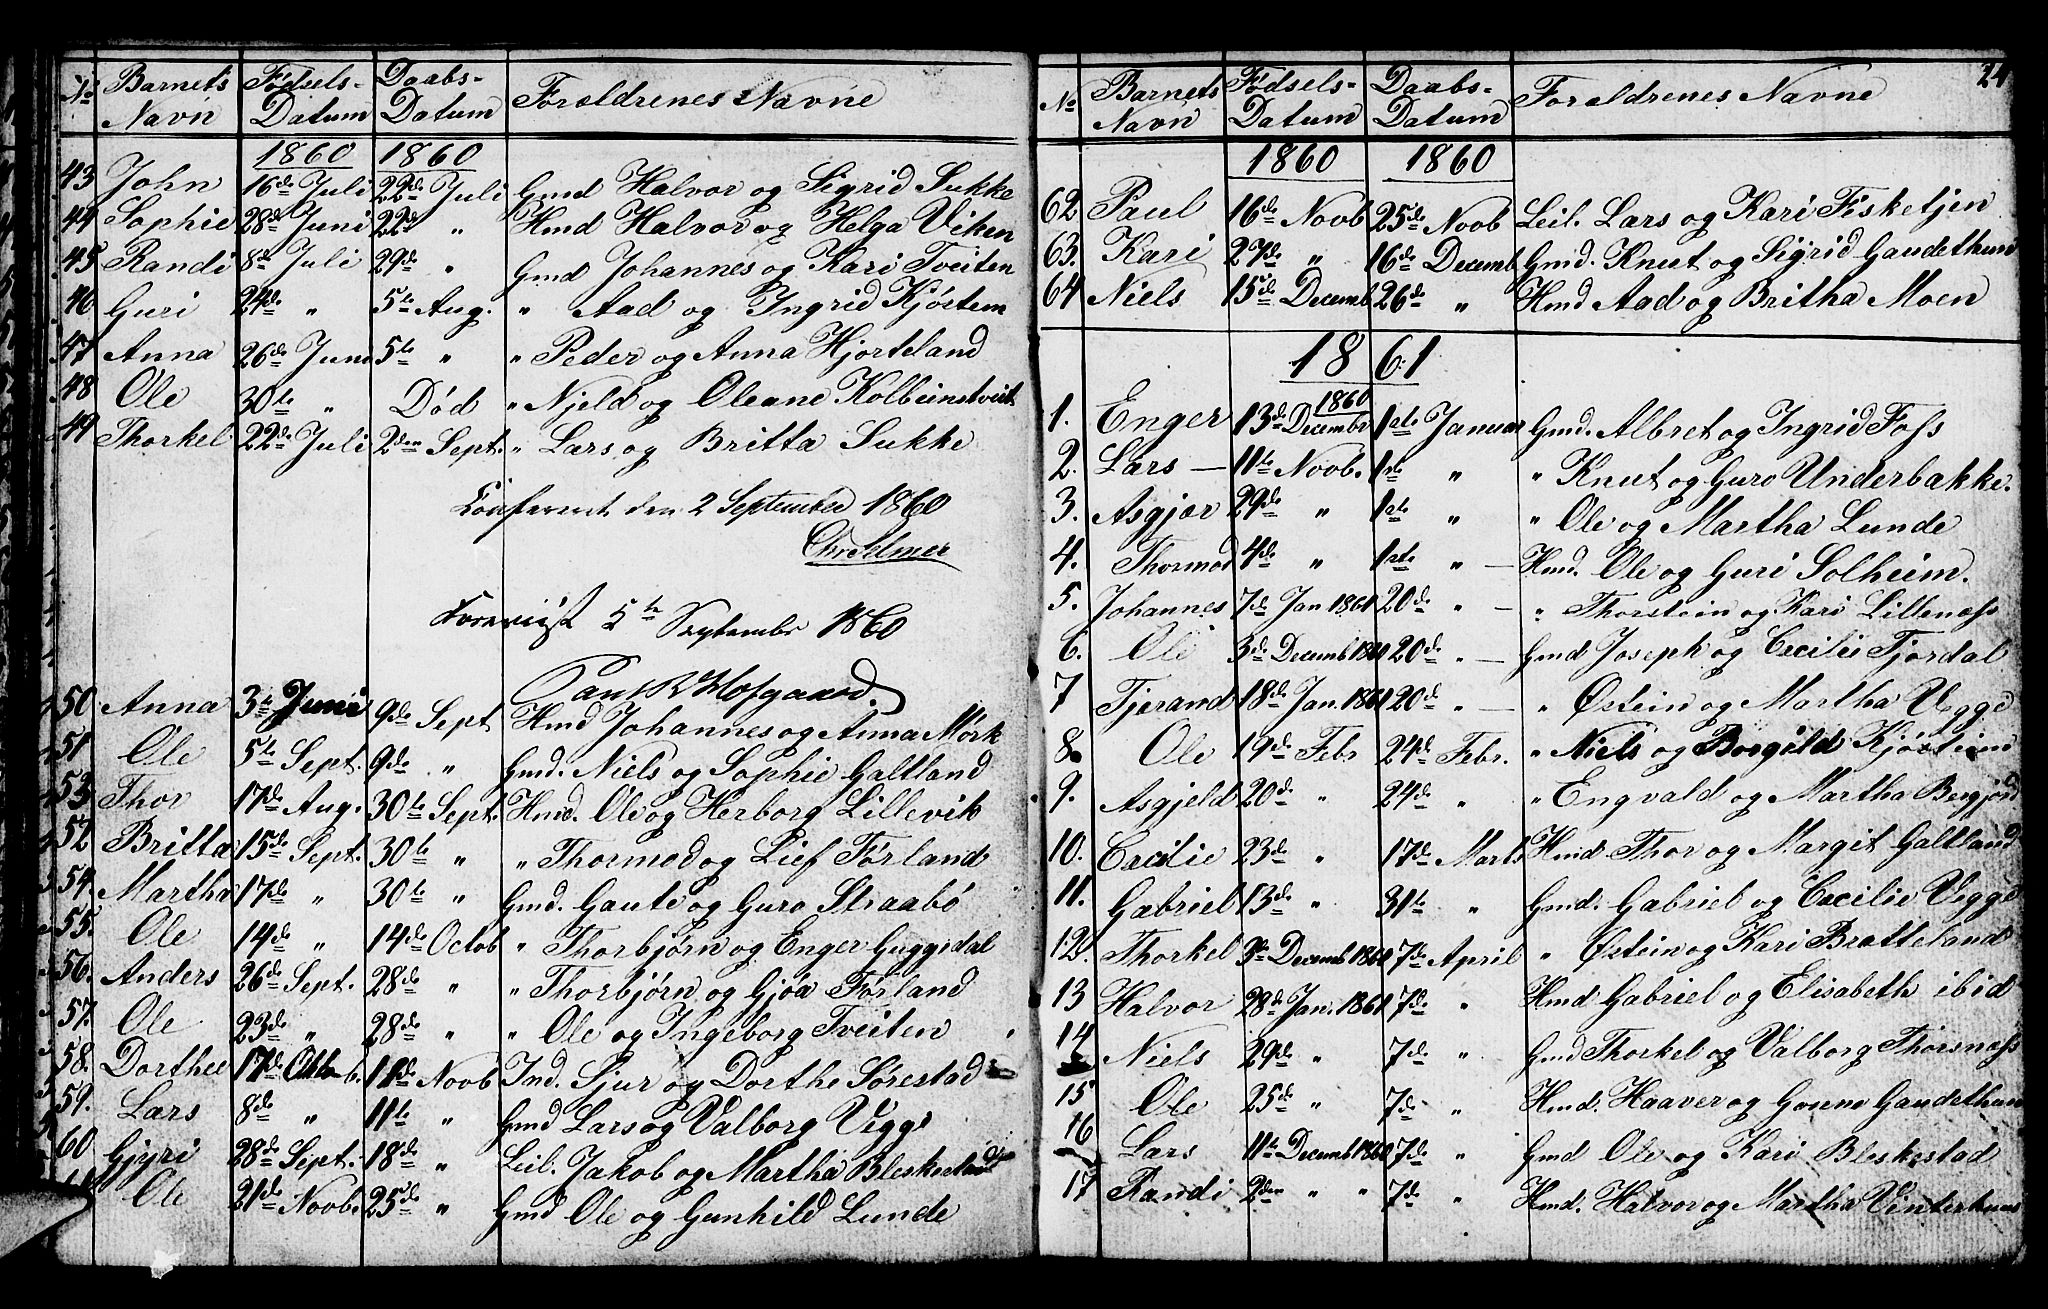 No Barnets Navn Fødsels-Datum Daabs-Datum Forældrenes Navne
1860 1860
43 John 16de Juli 22de Juli Gmd Halvor og Sigrid Sukke
44 Sophie 28de Juni 22de " Hmd Halvor og Helga Viken
45 Randi 8de Juli 29de " Gmd Johannes og Kari Tveiten
46 Guri 24de " 5te Aug. " Aad og Ingrid Kjöstem
47 Anna 26de Juni 5te " " Peder og Anna Hjorteland
48 Ole 30te " Död " Njeld og Oleane Kolbeinstveit
49 Thorkel 22de Juli 2den Sept. " Lars og Britta Sukke
Confereret den 2 September 1860
Chr Selmer
Foreviist 5te September 1860
Paul Hofgaard
50 Anna 3de Juni 9de Sept Hmd Johannes og Anna Mørk
51 Ole 5te Sept. 9de " Gmd. Niels og Sophie Galtland
53 Thor 17de Aug. 30te Sept. Hmd. Ole og Herborg Lillevik
52 Britta 15de Sept. 30te " " Thormod og Lief Førland
54. Martha 17de " 30te " Gmd. Gaute og Guro Straabö
55. Ole 14de " 14de Octob " Thorbjørn og Enger Guggedal
56. Anders 26de Sept. 28de " " Thorbjørn og Gjöa Førland
57. Ole 23de " 28de " " Ole og Ingeborg Tveiten
58. Dorthee 17de Octob. 11te Novb Ind. Sjur og Dorthe Sørestad
59. Lars 8de " 11te " Gmd Lars og Valborg Vigge
60 Gjyri 28de Sept. 18de " Leil. Jakob og Martha Bleskestad
Ole 21de Novb. 25de " Gmd Ole og Gunhild Lunde
24
No Barnets Navn Fødsels-Datum Daabs-Datum Forældrenes Navne
1860 1860
62 Paul 16de Novb 25de Novb Leil. Lars og Kari Fisketjen
63. Kari 27de " 16de Decemb Gmd. Knut og Sigrid Gaudethun
64 Niels 15de Decemb 26de " Hmd Aad og Britha Moen
1861
1860
1. Enger 13de Decembr 1ste Januar Gmd. Albret og Ingrid Foss
2. Lars — 11te Novb. 1ste " " Knut og Guro Underbakke.
3. Asgjær 29de " 1ste " " Ole og Martha Lunde
4. Thormod 4de " 1ste " — Hmd. Ole og Guri Solheim.
5. Johannes 7de Jan 1861 20de " — " Thorstein og Kari Lillenæss
6. Ole 3de Decemb 1860 20de " — Gmd Joseph og Cecilie Fjordal
7 Tjerand 18de Jan. 1861 20de " — " Østein og Martha Vigge
8. Ole 19de Febr 24de Febr. " Niels og Borgild Kjöstem
9. Asgjeld 20de " 24de " " Engvald og Martha Bergjord
10. Cecilie 23de " 17de Marts Hmd Thor og Margit Galtland
11. Gabriel 13de " 31te " Gmd. Gabriel og Cecilie Vigge
12. Thorkel 9de Decemb 1860 7de April " Østein og Kari Bratteland
13 Halvor 28de Jan. 1861 7de " Hmd Gabriel og Elisabeth ibid
14 Niels 29de " 7de " Gmd Thorkel og Valborg Thorsnæss
15 Ole 25de " 7de " Hmd. Haaver og Gonne Gaudethun
16 Lars 11te Decemb 1860 7de " Gmd Ole og Kari Bleskestad
17 Randi 2den " " 7de " Hmd. Halvor og Martha Vinterhuus